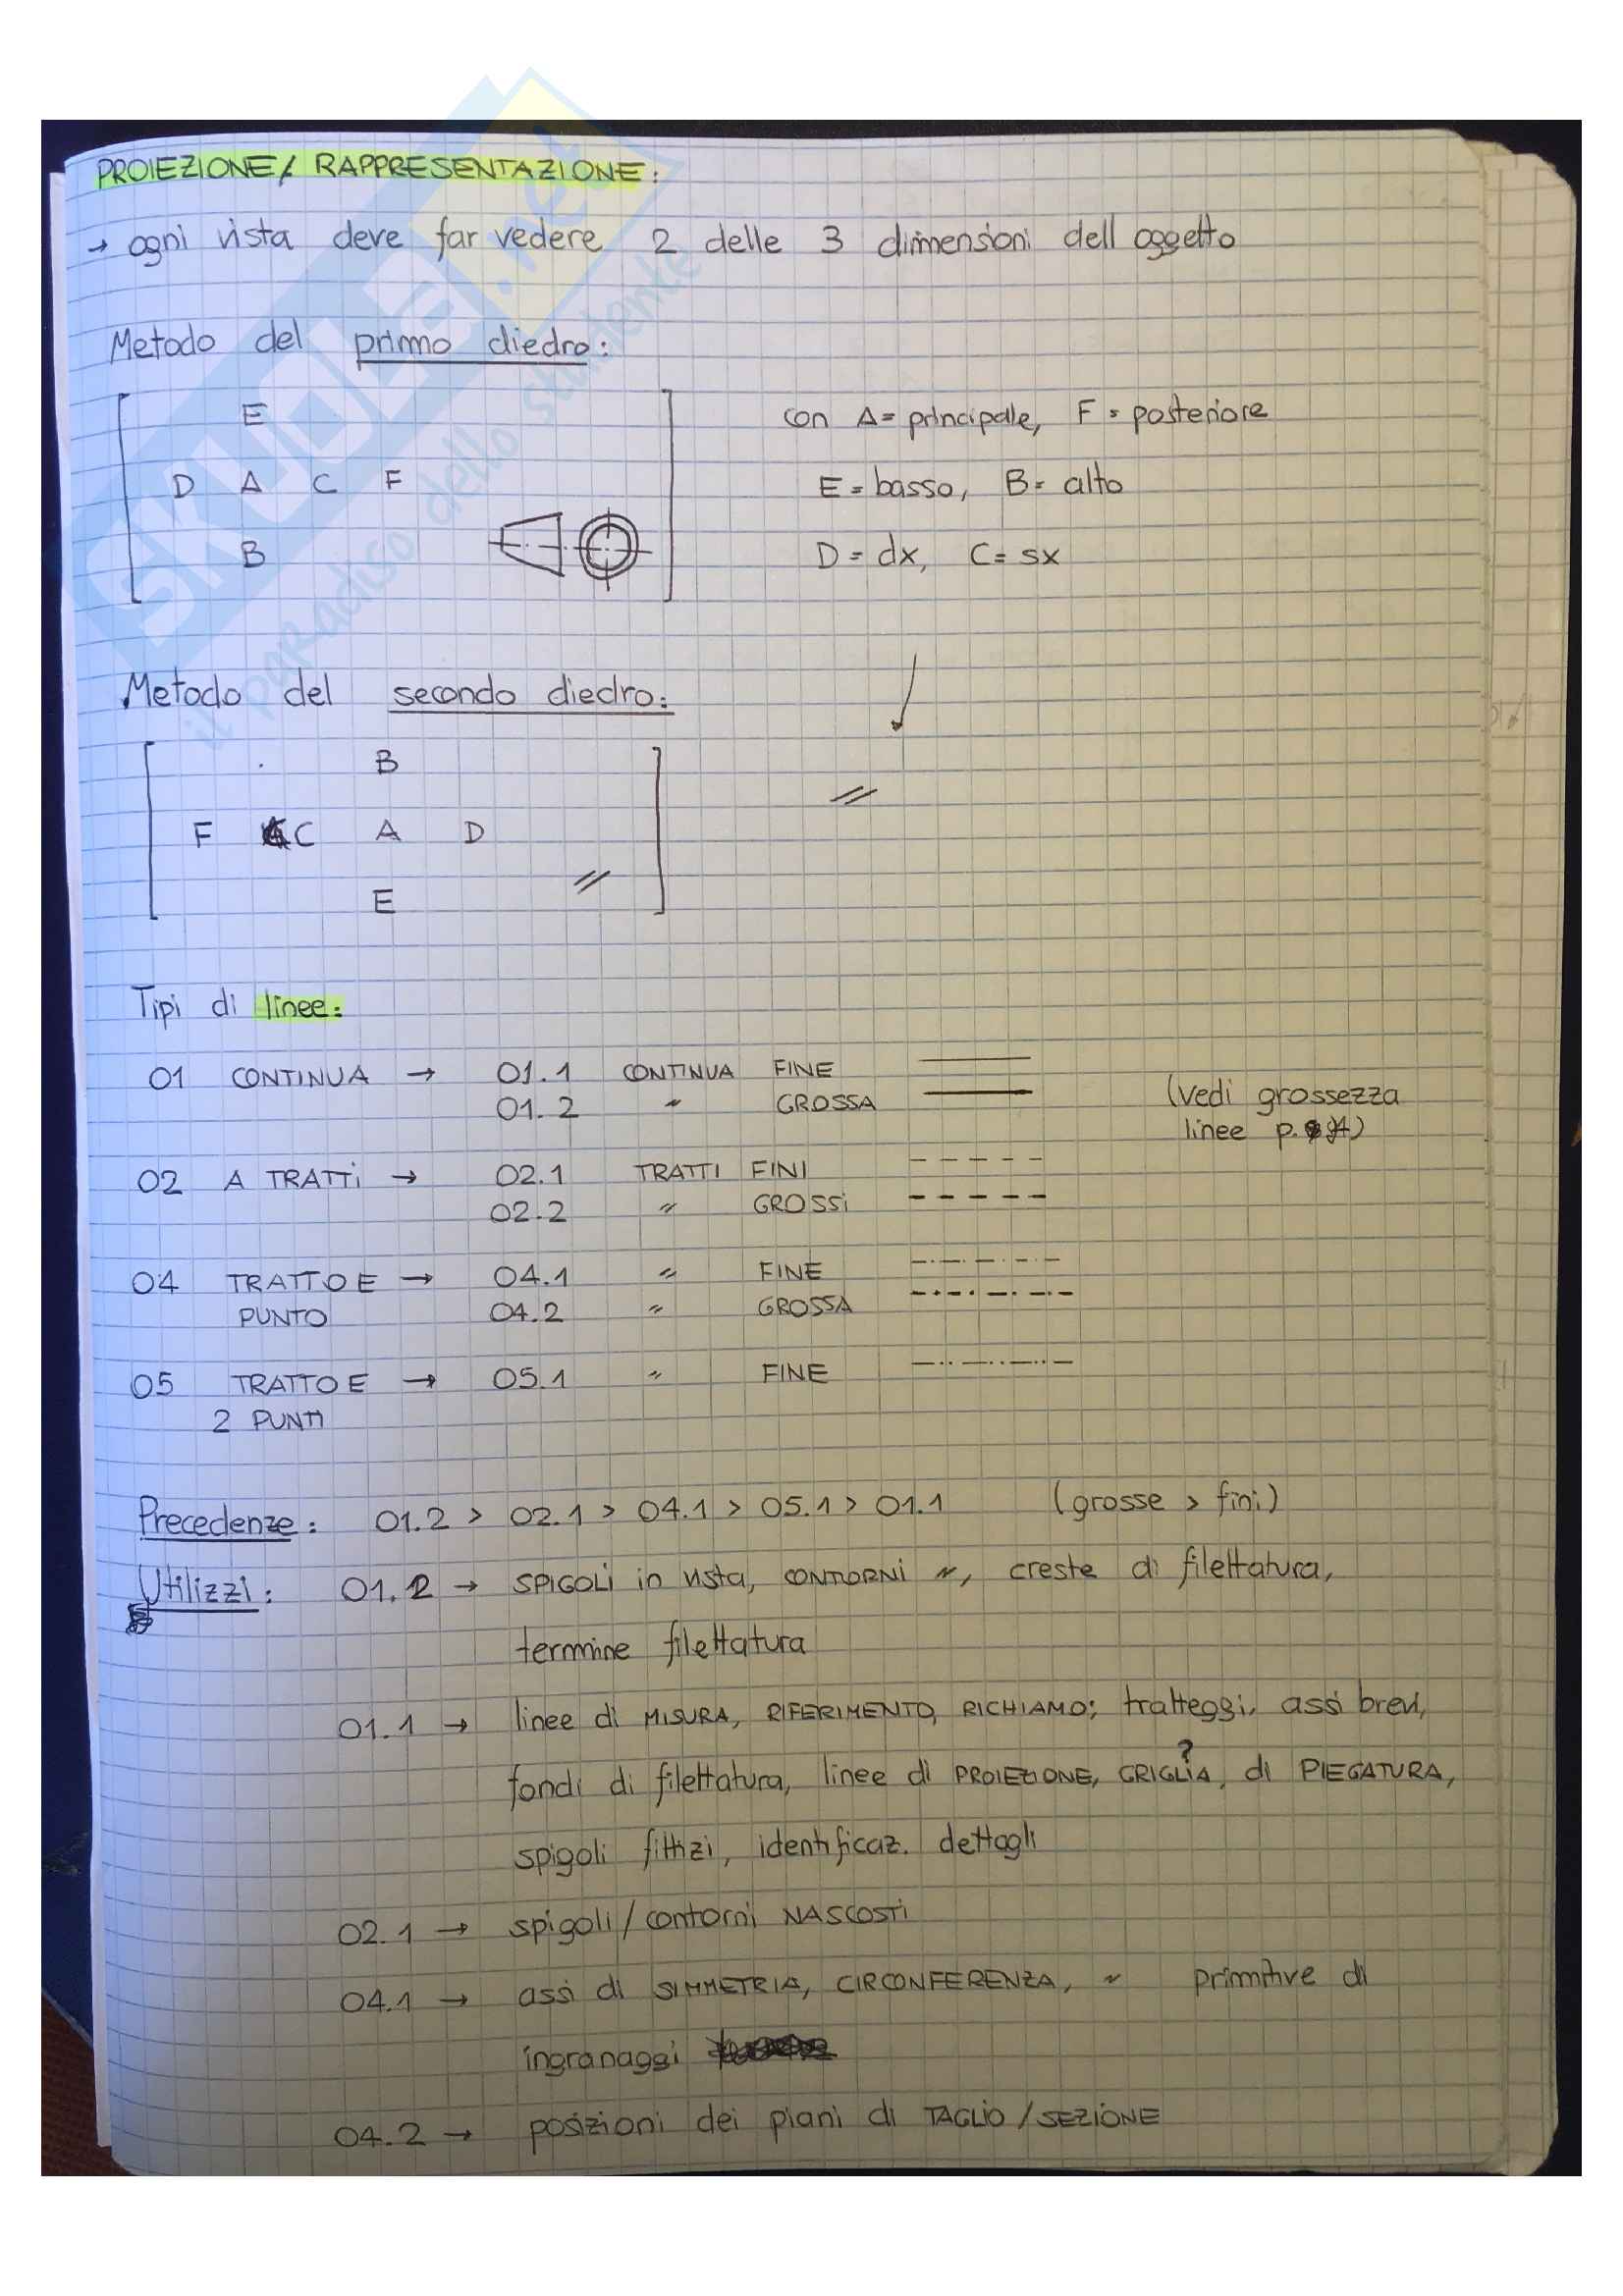 PROIEZIONE/ RAPPRESENTAZIONE:
→ ogni vista deve far vedere 2 delle 3 dimensioni dell oggetto
Metodo del primo diedro:
E
D A C F
B
con A= principale, F= posteriore
E= basso, B= alto
D= dx, C= sx
Metodo del secondo diedro:
B
F C A D
E
〃
〃
Tipi di linee:
01 CONTINUA → 01.1 CONTINUA FINE
01.2 〃 GROSSA
(vedi grossezza
linee p.
02 A TRATTi → 02.1 TRATTI FINI
02.2 〃 GROSSi
04 TRATTO E → 04.1 〃 FINE
PUNTO 04.2 〃 GROSSA
05 TRATTO E → 05.1 〃 FINE
2 PUNTI
Precedenze: 01.2 > 02.1 > 04.1 > 05.1 > 01.1 (grosse > fini)
Utilizzi: 01.2 → SPIGOLi in vista, CONTORNi 〃, creste di filettatura,
termine filettatura
01.1 → linee di MISURA, RIFERIMENTO, RICHIAMO; tratteggi, assi brevi,
fondi di filettatura, linee di PROIEZIONE, GRIGLiA?, di PIEGATURA,
spigoli fittizi, identificaz. dettagli
02.1 → spigoli/contorni NASCOSTi
04.1 → assi di SIMMETRIA, CIRCONFERENZA, 〃 primitive di
ingranaggi
04.2 → posizioni dei piani di TAGLIO/SEZIONE
SKUOLA.net
il paradiso dello studente